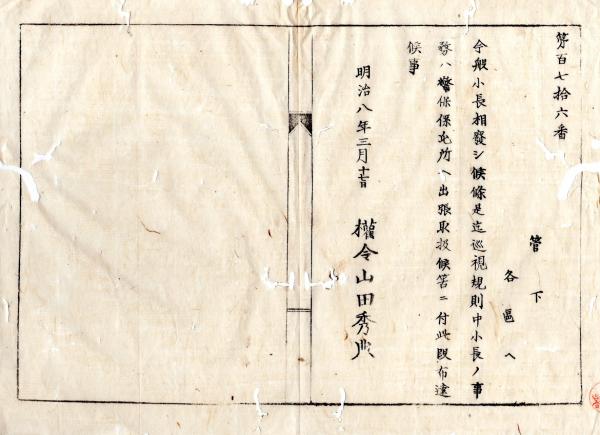 第百七拾六番
管下
各區へ
今般小長相廢シ候條是迄巡視規則中小長ノ事
務ハ警保保屯所ヘ出張取扱候筈ニ付此段布達
候事
明治八年三月十七日
權令山田秀典